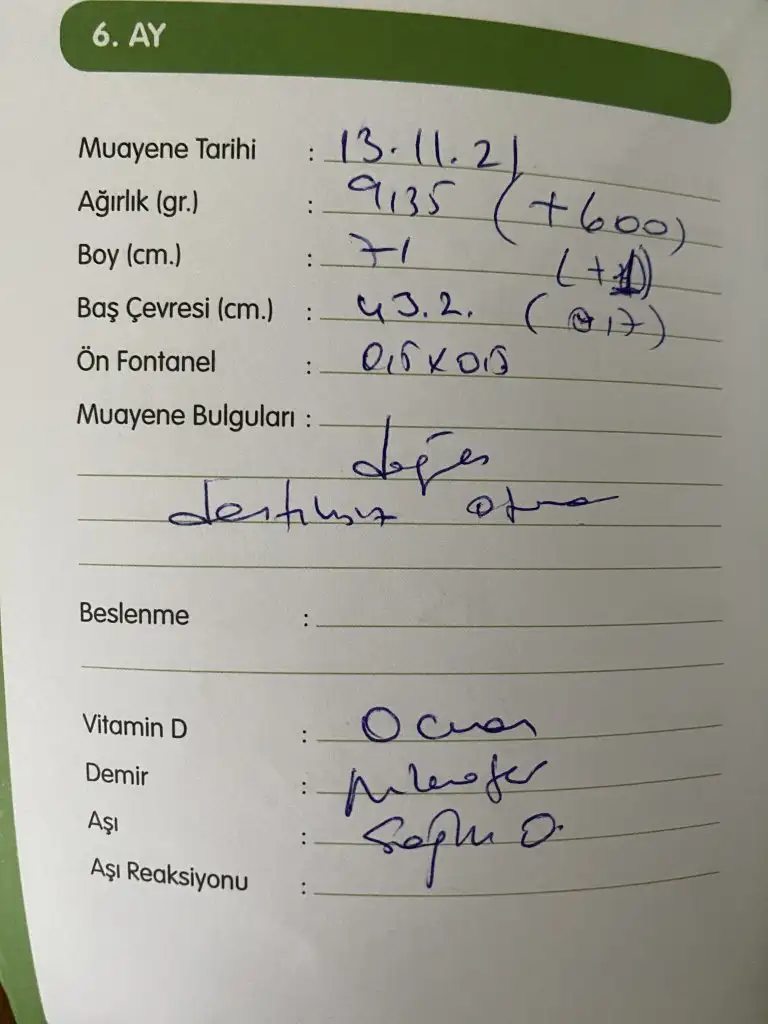 6. AY
Muayene Tarihi : 13.11.21
Ağırlık (gr.) : 9135 (+600)
Boy (cm.) : 71 (+1)
Baş Çevresi (cm.) : 43.2. (0,7)
Ön Fontanel : 0,5 x 0,5
Muayene Bulguları :
doğal
desteksiz oturma
Beslenme :
Vitamin D :
Demir :
Aşı : Sağlık O.
Aşı Reaksiyonu :